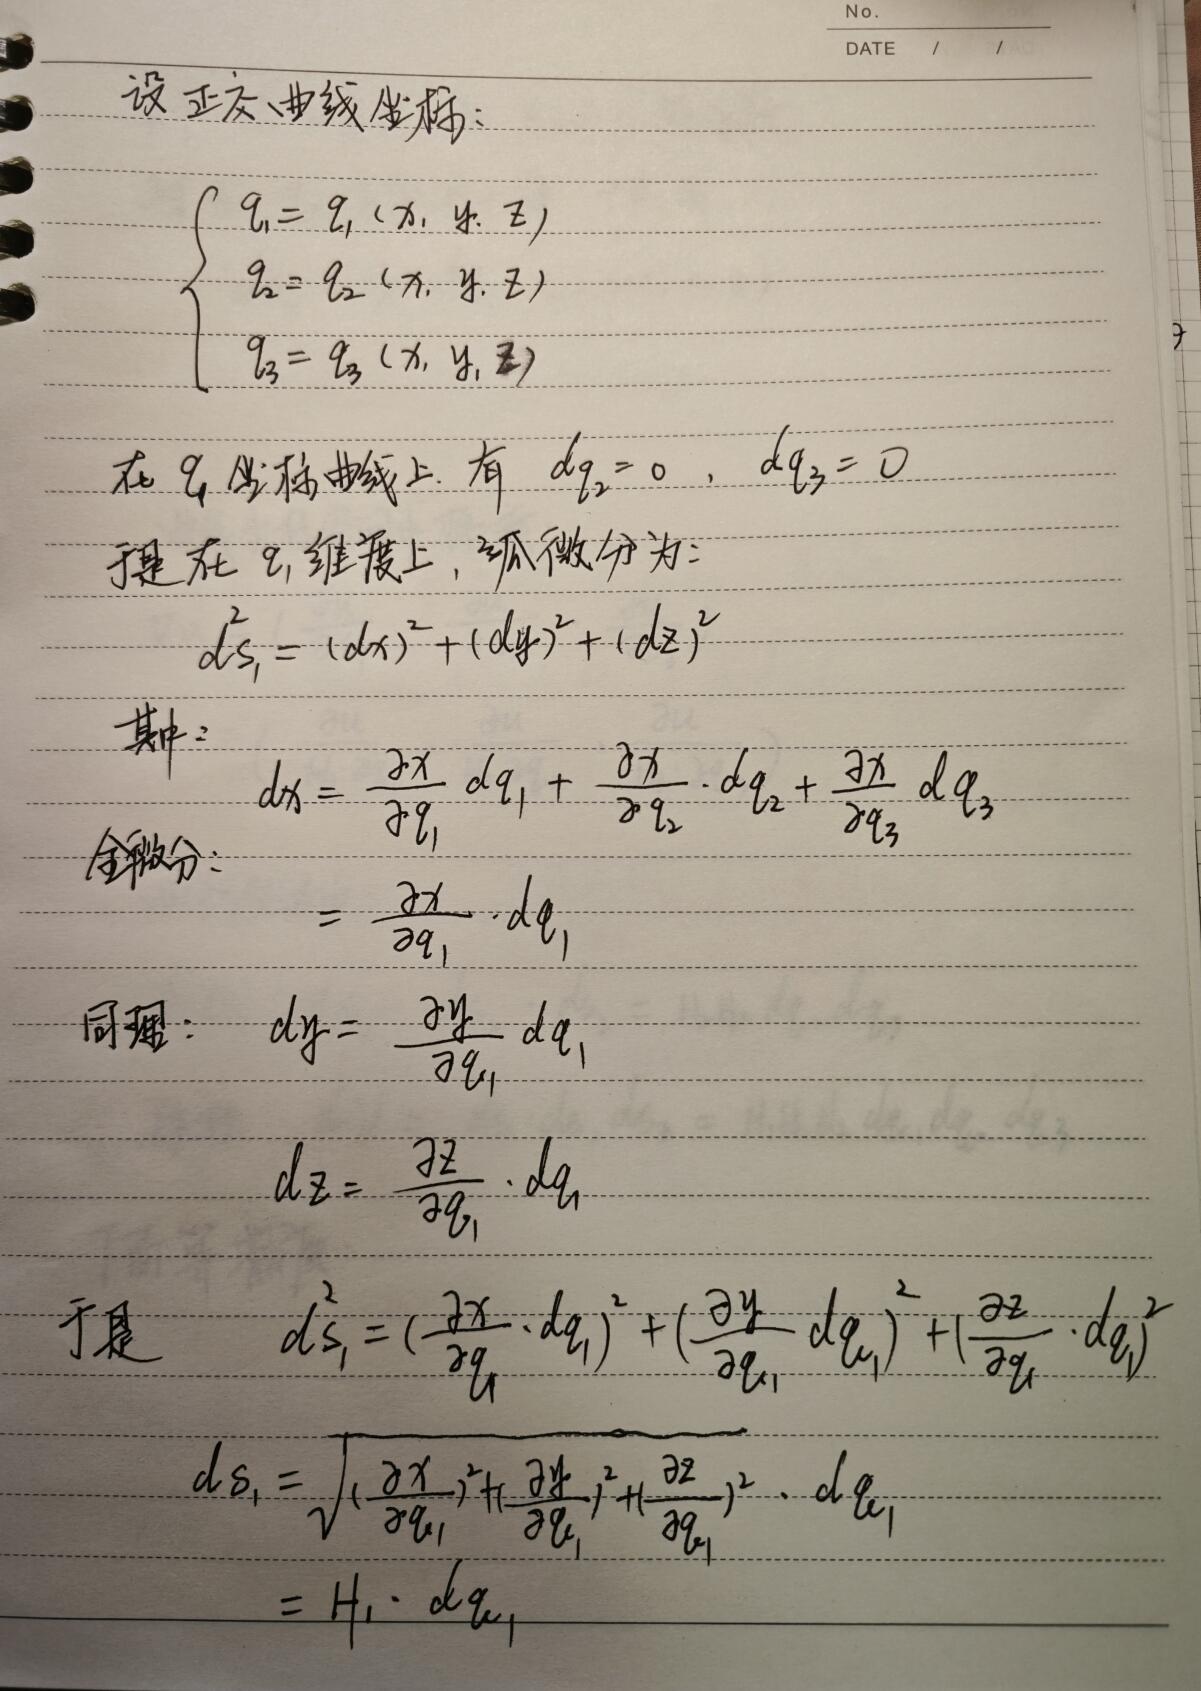 No.
DATE / /
设正交曲线坐标:
q₁ = q₁ (x, y, z)
q₂ = q₂ (x, y, z)
q₃ = q₃ (x, y, z)
在 q₁ 坐标曲线上. 有 dq₂ = 0 , dq₃ = 0
于是在 q₁ 维度上, 弧微分为:
ds₁² = (dx)² + (dy)² + (dz)²
其中:
dx = ∂x/∂q₁ dq₁ + ∂x/∂q₂ · dq₂ + ∂x/∂q₃ dq₃
全微分:
= ∂x/∂q₁ · dq₁
同理: dy = ∂y/∂q₁ dq₁
dz = ∂z/∂q₁ · dq₁
于是 ds₁² = (∂x/∂q₁ · dq₁)² + (∂y/∂q₁ dq₁)² + (∂z/∂q₁ · dq₁)²
ds₁ = √((∂x/∂q₁)² + (∂y/∂q₁)² + (∂z/∂q₁)²) · dq₁
= H₁ · dq₁